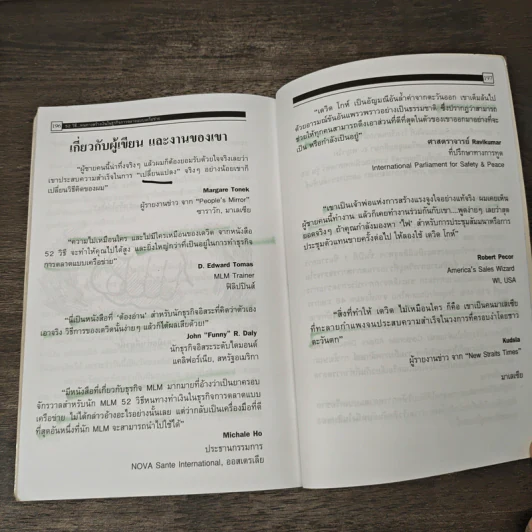 196
เกี่ยวกับผู้เขียน และงานของเขา
"ผู้ชายคนนี้น่าทึ่งจริงๆ แล้วผมก็ต้องยอมรับด้วยใจจริงเลยว่า
เขาประสบความสำเร็จในการ "เปลี่ยนแปลง" จริงๆ อย่างน้อยเขาก็
เปลี่ยนวิธีคิดของผม"
Margare Tonek
ผู้รายงานข่าว จาก "People's Mirror"
ซาราวัก, มาเลเซีย
"ความไม่เหมือนใคร และไม่มีใครเหมือนของเดวิด จากหนังสือ
52 วิธี จะทำให้คุณไปได้สูง และยิ่งใหญ่กว่าที่เป็นอยู่ในการทำธุรกิจ
การตลาดแบบเครือข่าย"
D. Edward Tomas
MLM Trainer
ฟิลิปปินส์
"นี่เป็นหนังสือที่ 'ต้องอ่าน' สำหรับนักธุรกิจอิสระที่คิดว่าตัวเอง
เอาจริง วิธีการของเดวิดนั้นง่ายๆ แล้วก็ได้ผลเสียด้วย!"
John "Funny" R. Daly
นักธุรกิจอิสระระดับไดมอนด์
แคลิฟอร์เนีย, สหรัฐอเมริกา
"มีหนังสือที่เกี่ยวกับธุรกิจ MLM มากมายที่อ้างว่าเป็นยาครอบ
จักรวาลสำหรับนัก MLM 52 วิธีหนทางทำเงินในธุรกิจการตลาดแบบ
เครือข่าย ไม่ได้กล่าวอ้างอะไรอย่างนั้นเลย แต่ว่ากลับเป็นเครื่องมือที่ดี
ที่สุดอันหนึ่งที่นัก MLM จะสามารถนำไปใช้ได้"
Michale Ho
ประธานกรรมการ
NOVA Sante International, ออสเตรเลีย
197
"เดวิด โกห์ เป็นอัญมณีอันล้ำค่าจากตะวันออก เขาเต็มล้นไป
ด้วยอารมณ์ขันอันแพรวพราวอย่างเป็นธรรมชาติ ซึ่งปรากฏว่าสามารถ
ช่วยให้ทุกคนสามารถดึงเอาส่วนที่ดีที่สุดในตัวของเขาออกมาอย่างที่จะ
เป็น หรือกำลังเป็นอยู่"
ศาสตราจารย์ Ravikumar
ที่ปรึกษาทางการทูต
International Parliament for Safety & Peace
"เขาเป็นเจ้าพ่อแห่งการสร้างแรงจูงใจอย่างแท้จริง ผมเคยเห็น
ผู้ชายคนนี้ทำงาน แล้วก็เคยทำงานร่วมกันกับเขา...พูดง่ายๆ เลยว่าสุด
ยอดจริงๆ ถ้าคุณกำลังมองหา 'ไฟ' สำหรับการประชุมสัมมนาหรือการ
ประชุมตัวแทนขายครั้งต่อไป ให้ลองใช้ เดวิด โกห์"
Robert Pecor
America's Sales Wizard
WI, USA
"สิ่งที่ทำให้ เดวิด ไม่เหมือนใคร ก็คือ เขาเป็นคนมาเลเซีย
ที่ทะลายกำแพงจนประสบความสำเร็จในวงการที่ครอบงำโดยชาว
ตะวันตก"
ผู้รายงานข่าว จาก "New Straits Times"
มาเลเซีย